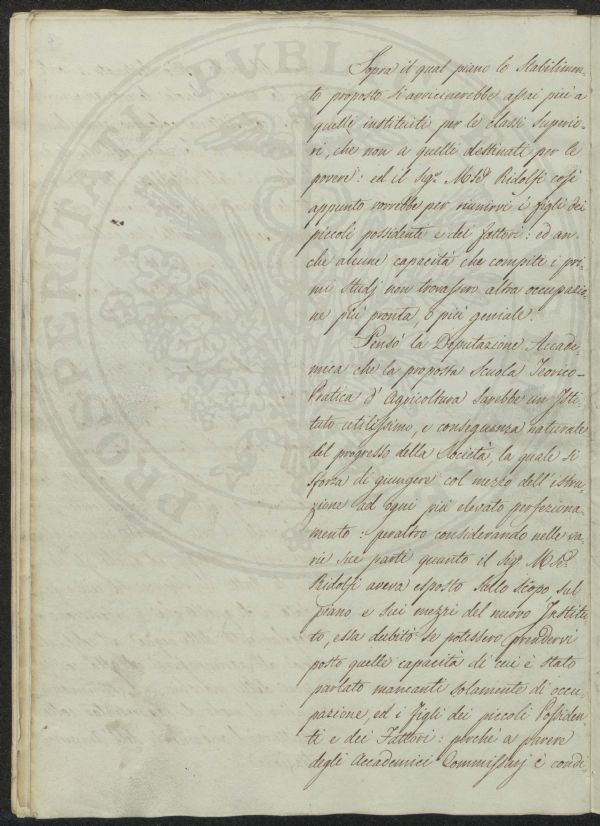 Sopra il qual piano lo Stabilimen-
to proposto si avvicinerebbe assai più a
quelli instituiti per le classi superio-
ri, che non a quelli destinati per le
povere: ed il Sigr. Mse. Ridolfi così
appunto vorrebbe per riunirvi i figli dei
piccoli possidenti e dei fattori: ed an-
che alcune capacità che compite i pri-
mi Studj non trovassero altra occupazio-
ne più pronta, o più geniale.
Pensò la Deputazione Accade-
mica che la proposta Scuola Teorico-
Pratica d'Agricoltura sarebbe un Isti-
tuto utilissimo, e conseguenza naturale
del progresso della Società, la quale si
sforza di giungere col mezzo dell'istru-
zione ad ogni più elevato perfeziona-
mento: peraltro considerando nelle va-
rie sue parti quanto il Sigr. Mse.
Ridolfi aveva esposto sullo scopo, sul
piano e sui mezzi del nuovo Institu-
to, essa dubitò se potessero prendervi
posto quelle capacità di cui è stato
parlato mancanti solamente di occu-
pazione, ed i figli dei piccoli Possiden-
ti e dei Fattori: perchè a parere
degli Accademici Commissarj è condi-
PROSPERITATI PVBLI